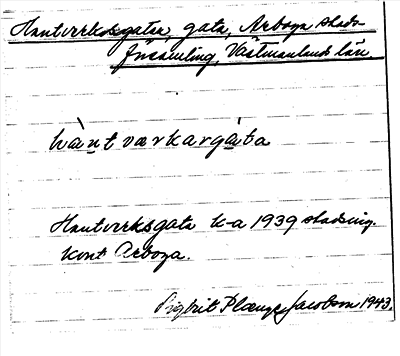 Hantverksgatan, gata, Arboya stads-
församling, Västmanlands län.
hàntværkargàta
Hantverksgata k-a 1939 stadsing.
kont Arboga.
Sigbrit Plænge Jacobson 1943.